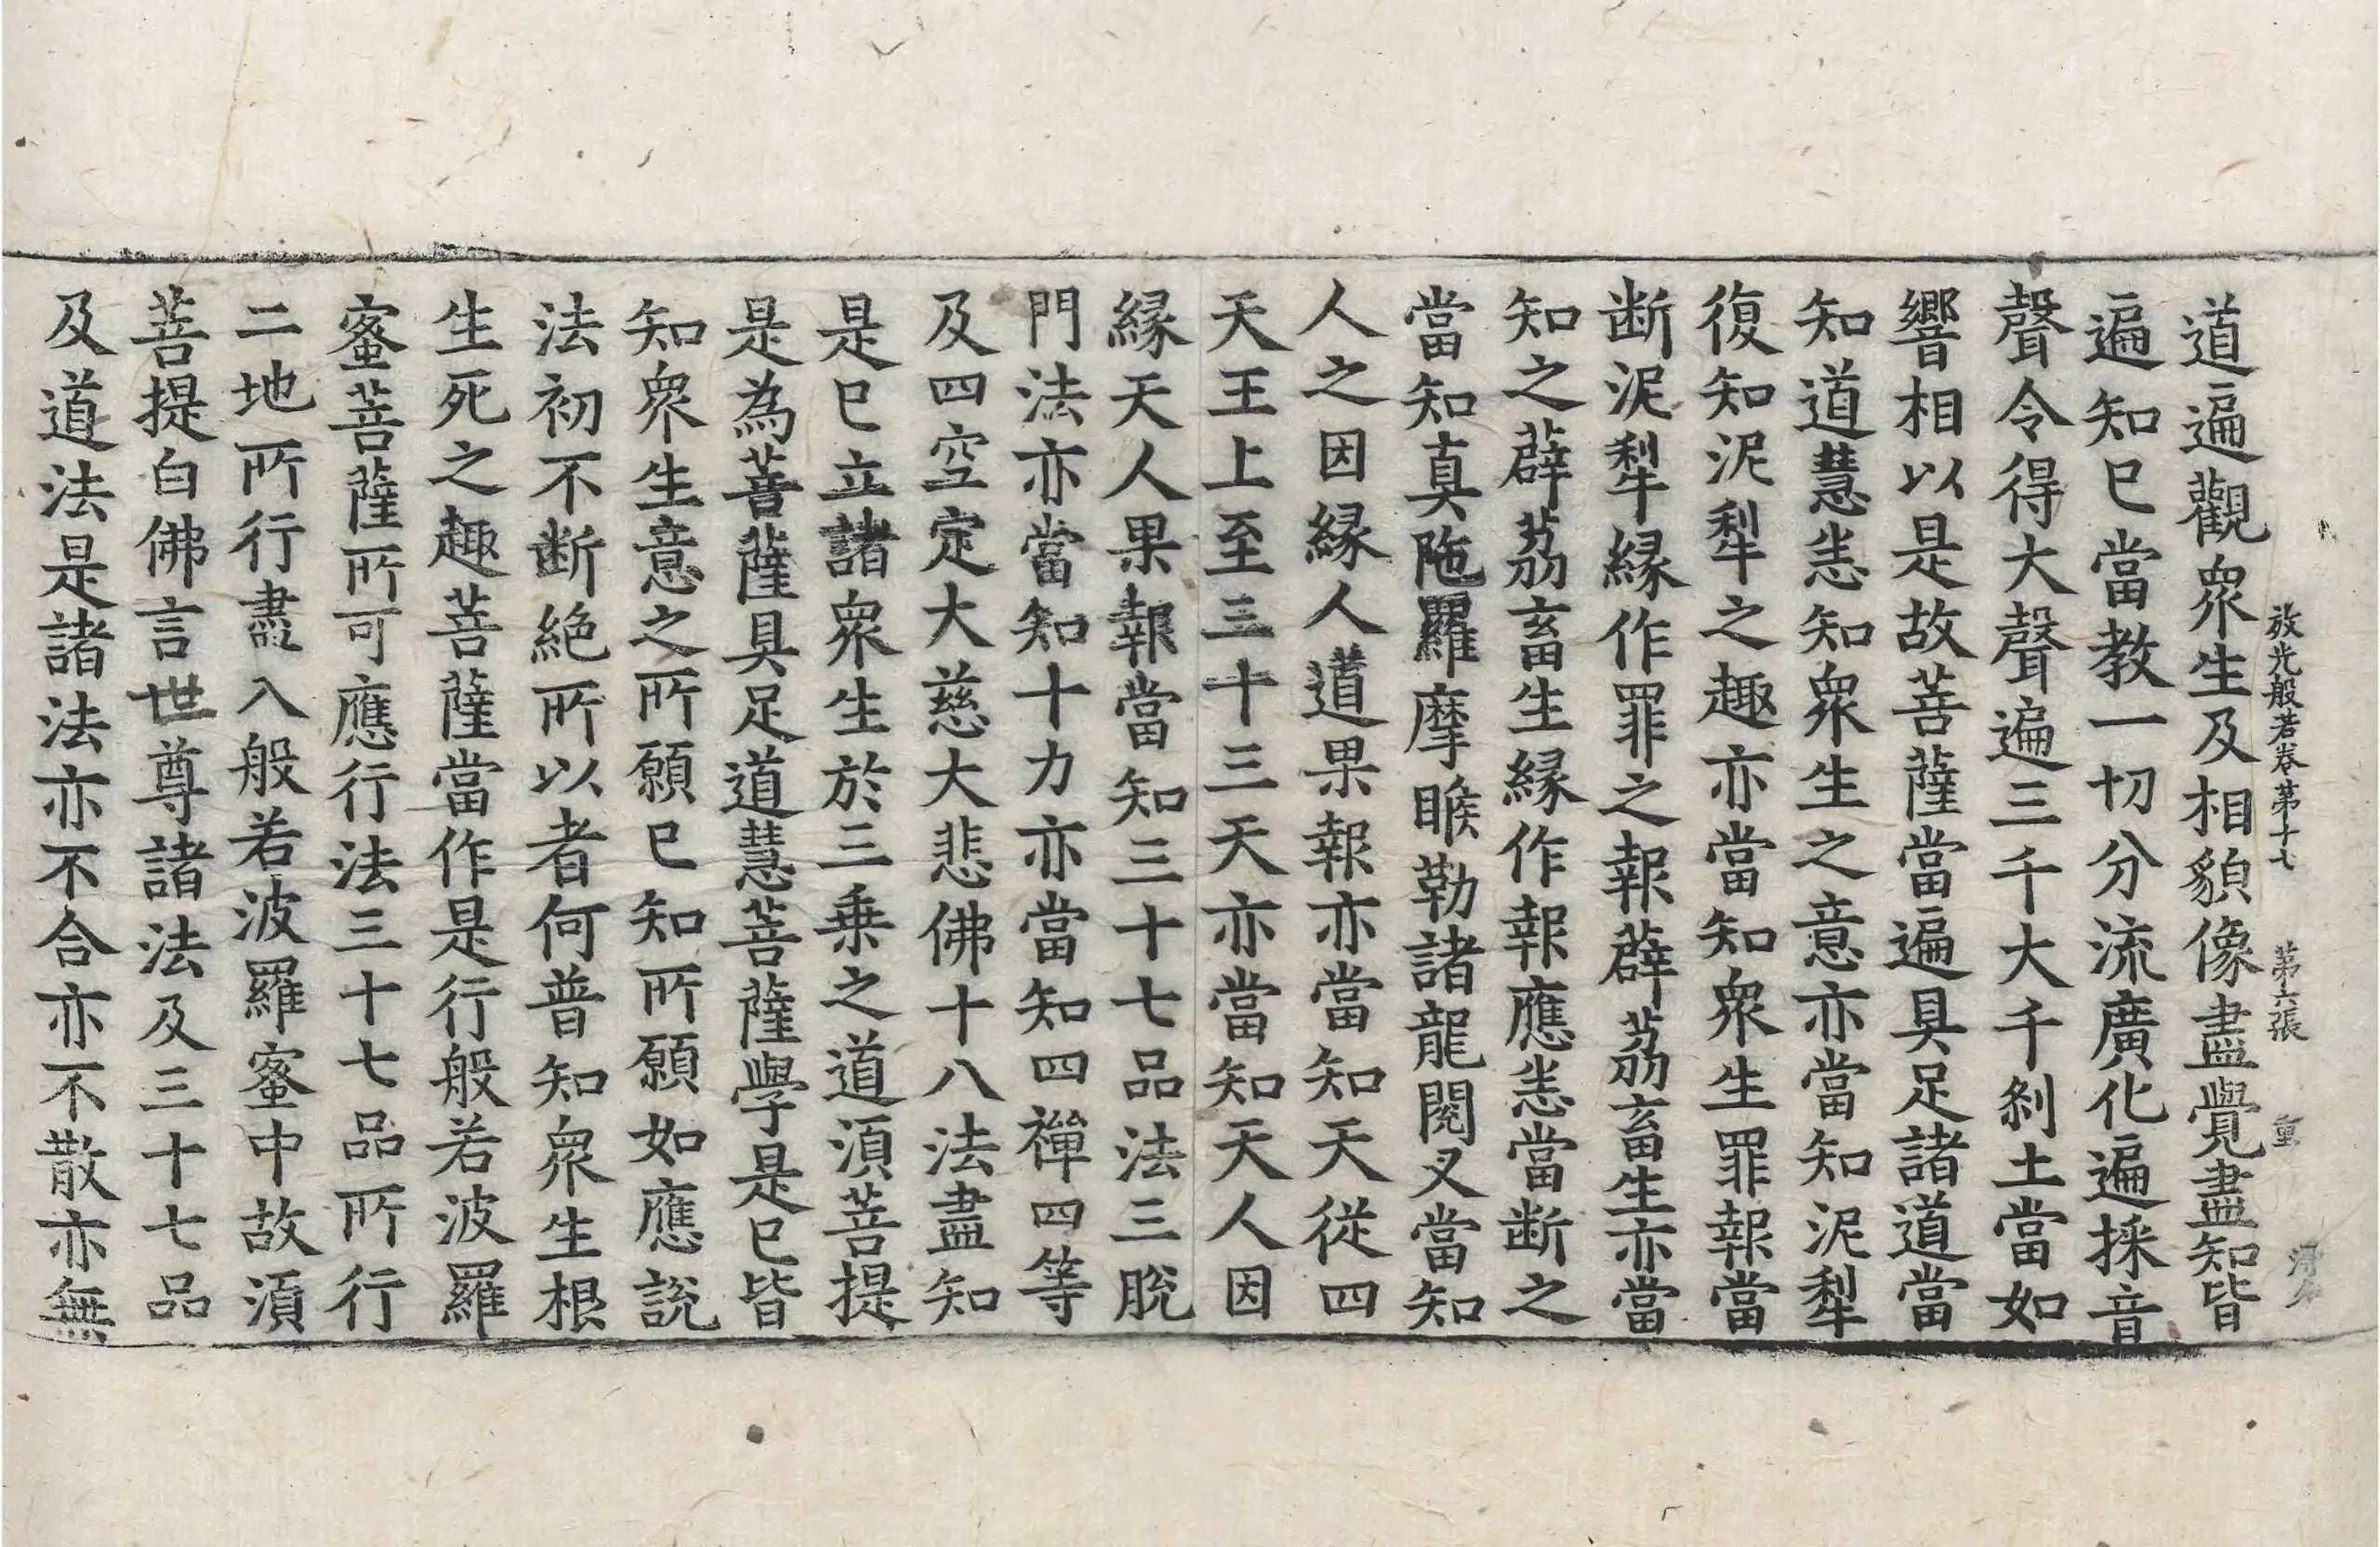 放光般若卷第十七　第六張　重
道遍觀衆生及相貌像盡覺盡知皆
遍知已當教一切分流廣化遍採音
聲令得大聲遍三千大千剎土當如
響相以是故菩薩當遍具足諸道當
知道慧悉知衆生之意亦當知泥犁
復知泥犁之趣亦當知衆生罪報當
断泥犁緣作罪之報薜荔畜生亦當
知之薜荔畜生緣作報應悉當断之
當知真陁羅摩睺勒諸龍閱叉當知
人之因緣人道果報亦當知天從四
天王上至三十三天亦當知天人因
緣天人果報當知三十七品法三脫
門法亦當知十力亦當知四禪四等
及四空定大慈大悲佛十八法盡知
是已立諸衆生於三乗之道湏菩提
是為菩薩具足道慧菩薩學是已皆
知衆生意之所願已知所願如應說
法初不断絕所以者何普知衆生根
生死之趣菩薩當作是行般若波羅
蜜菩薩所可應行法三十七品所行
二地所行盡入般若波羅蜜中故湏
菩提白佛言世尊諸法及三十七品
及道法是諸法亦不合亦不散亦無